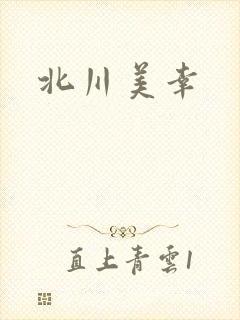 北川美幸
直上青雲1